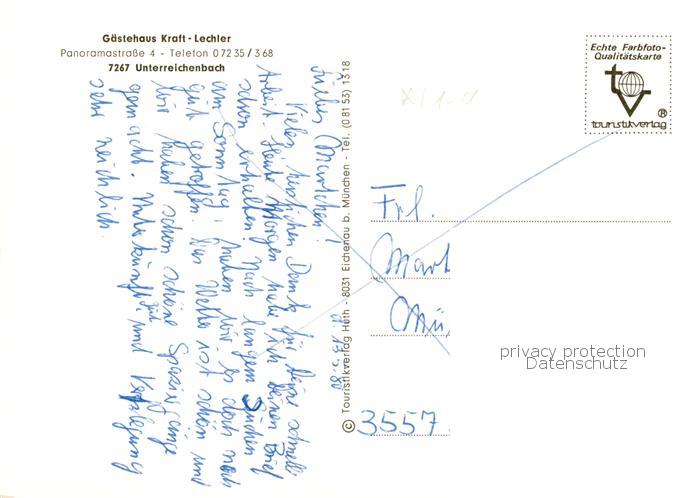 Gästehaus Kraft - Lechler
Panoramastraße 4 - Telefon 0 72 35 / 3 68
7267 Unterreichenbach
Echte Farbfoto-
Qualitätskarte
tv
touristikverlag ®
© Touristikverlag Huth - 8031 Eichenau b. München - Tel. (0 81 53) 13 18
Vielen herzlichen Dank für Deine schnelle
Arbeit. Heute Morgen habe ich Deinen Brief
schon erhalten. Nach langem Suchen
am Sonntag, haben wir es doch noch
gut getroffen. Das Wetter ist schön und
wir haben schon schöne Spaziergänge
gemacht. Unterkunft und Verpflegung
sehr reichlich.
Frl.
Mart
Mü
3557
privacy protection
Datenschutz